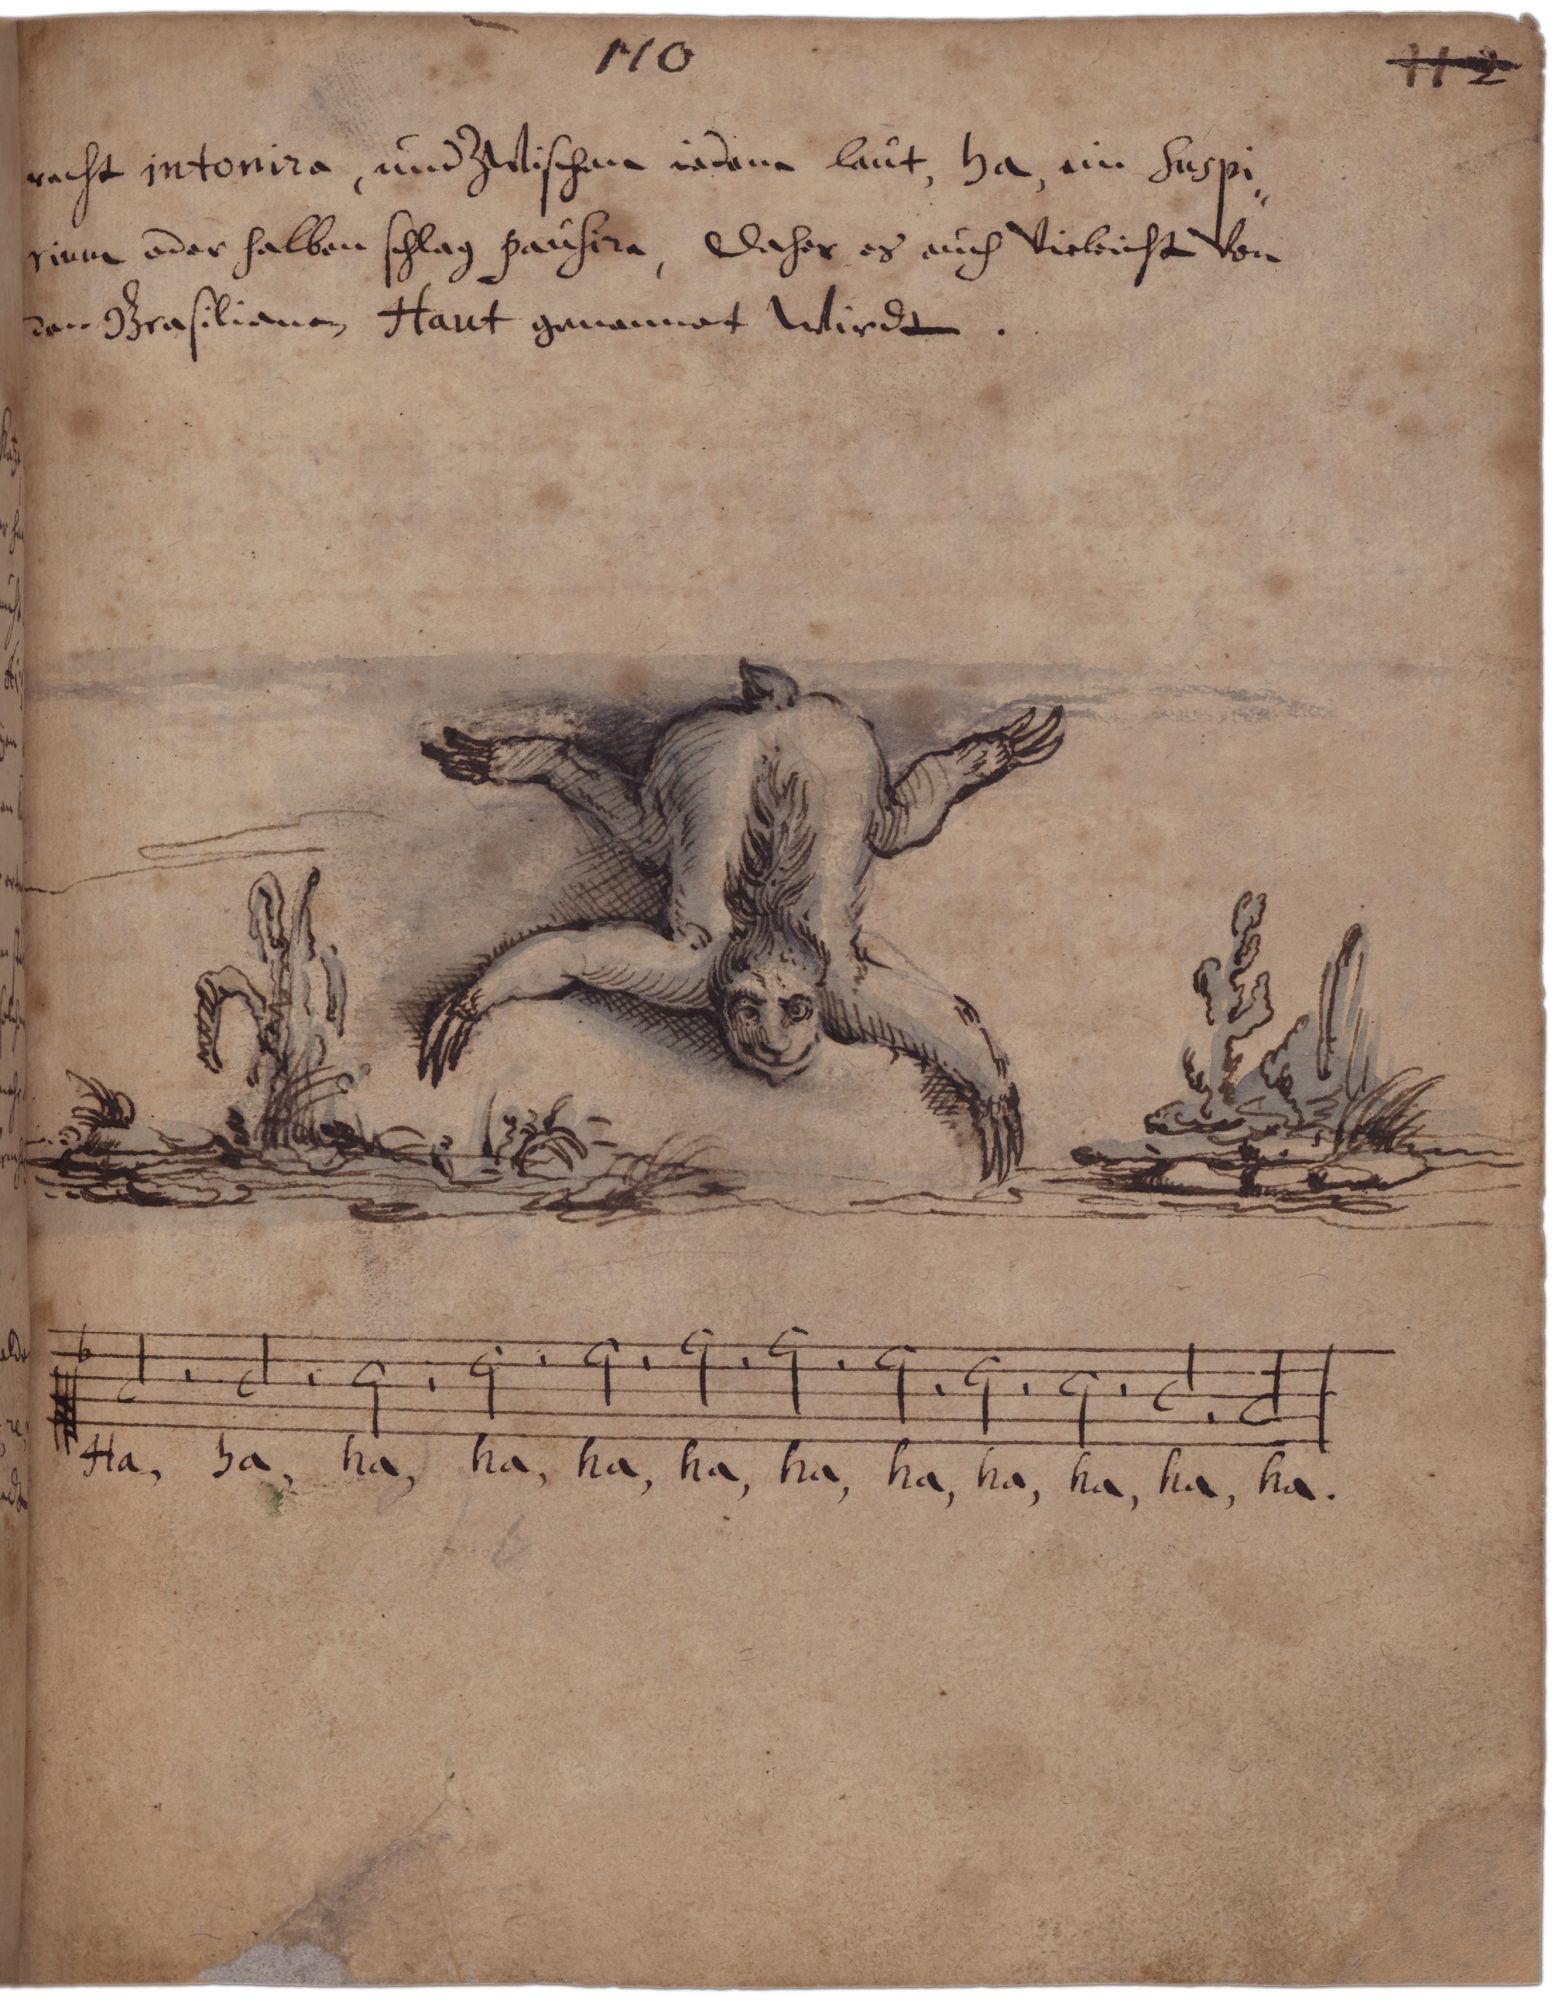 110
112
recht intonire, und Zwischen iedem laut, ha, ein Suspi„
rium oder halben schlag pausire, Daher es auch Vieleicht Von
den Brasilianen Haut genennet Wirdt.
Ha, ha, ha, ha, ha, ha, ha, ha, ha, ha, ha, ha.